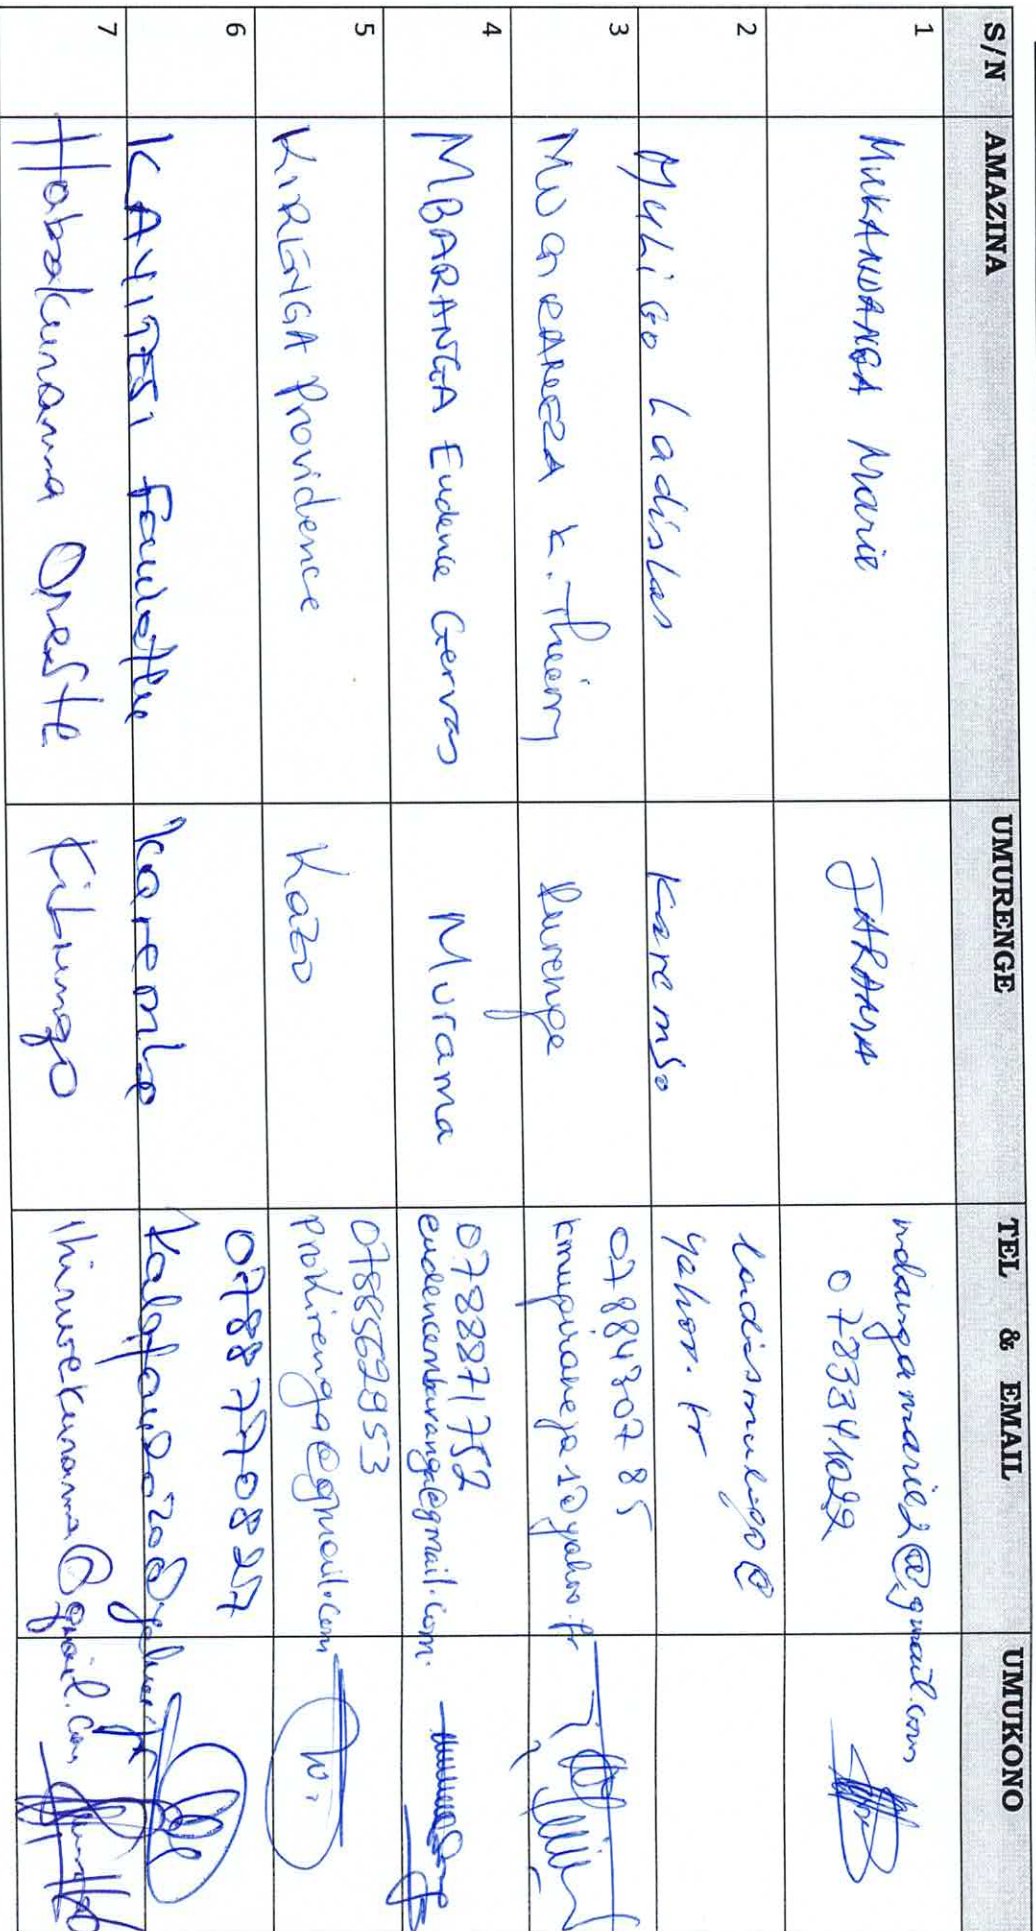 S/N AMAZINA UMURENGE TEL & EMAIL UMUKONO
1 MUKANDANGA Marie JARAMA ndangamarie2@gmail.com
0783341029
2 MULIGO Ladislas Karembo ladismuligo@
yahoo.fr
3 MUGIRANEZA K. Thierry Rurenge 0788430785
kmugiraneza1@yahoo.fr
4 MBARANGA Eudence Gervas Murama 0788871752
eudencembaranga@gmail.com.
5 KIRENGA Providence Kazo 0788562953
prokirenga@gmail.com
6 KAYITESI Karembo 0788770827
7 Habakurama Oreste Kibungo @gmail.com